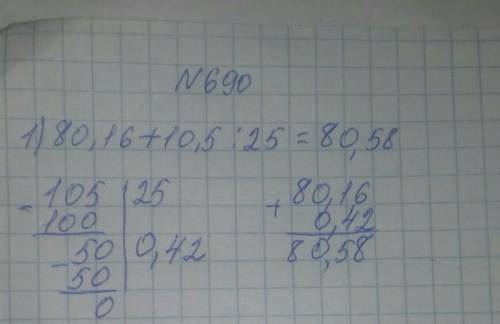 N690
1) 80,16+10,5:25=80,58
- 105 | 25
100
- 50 | 0,42
50
0
+ 80,16
0,42
80,58